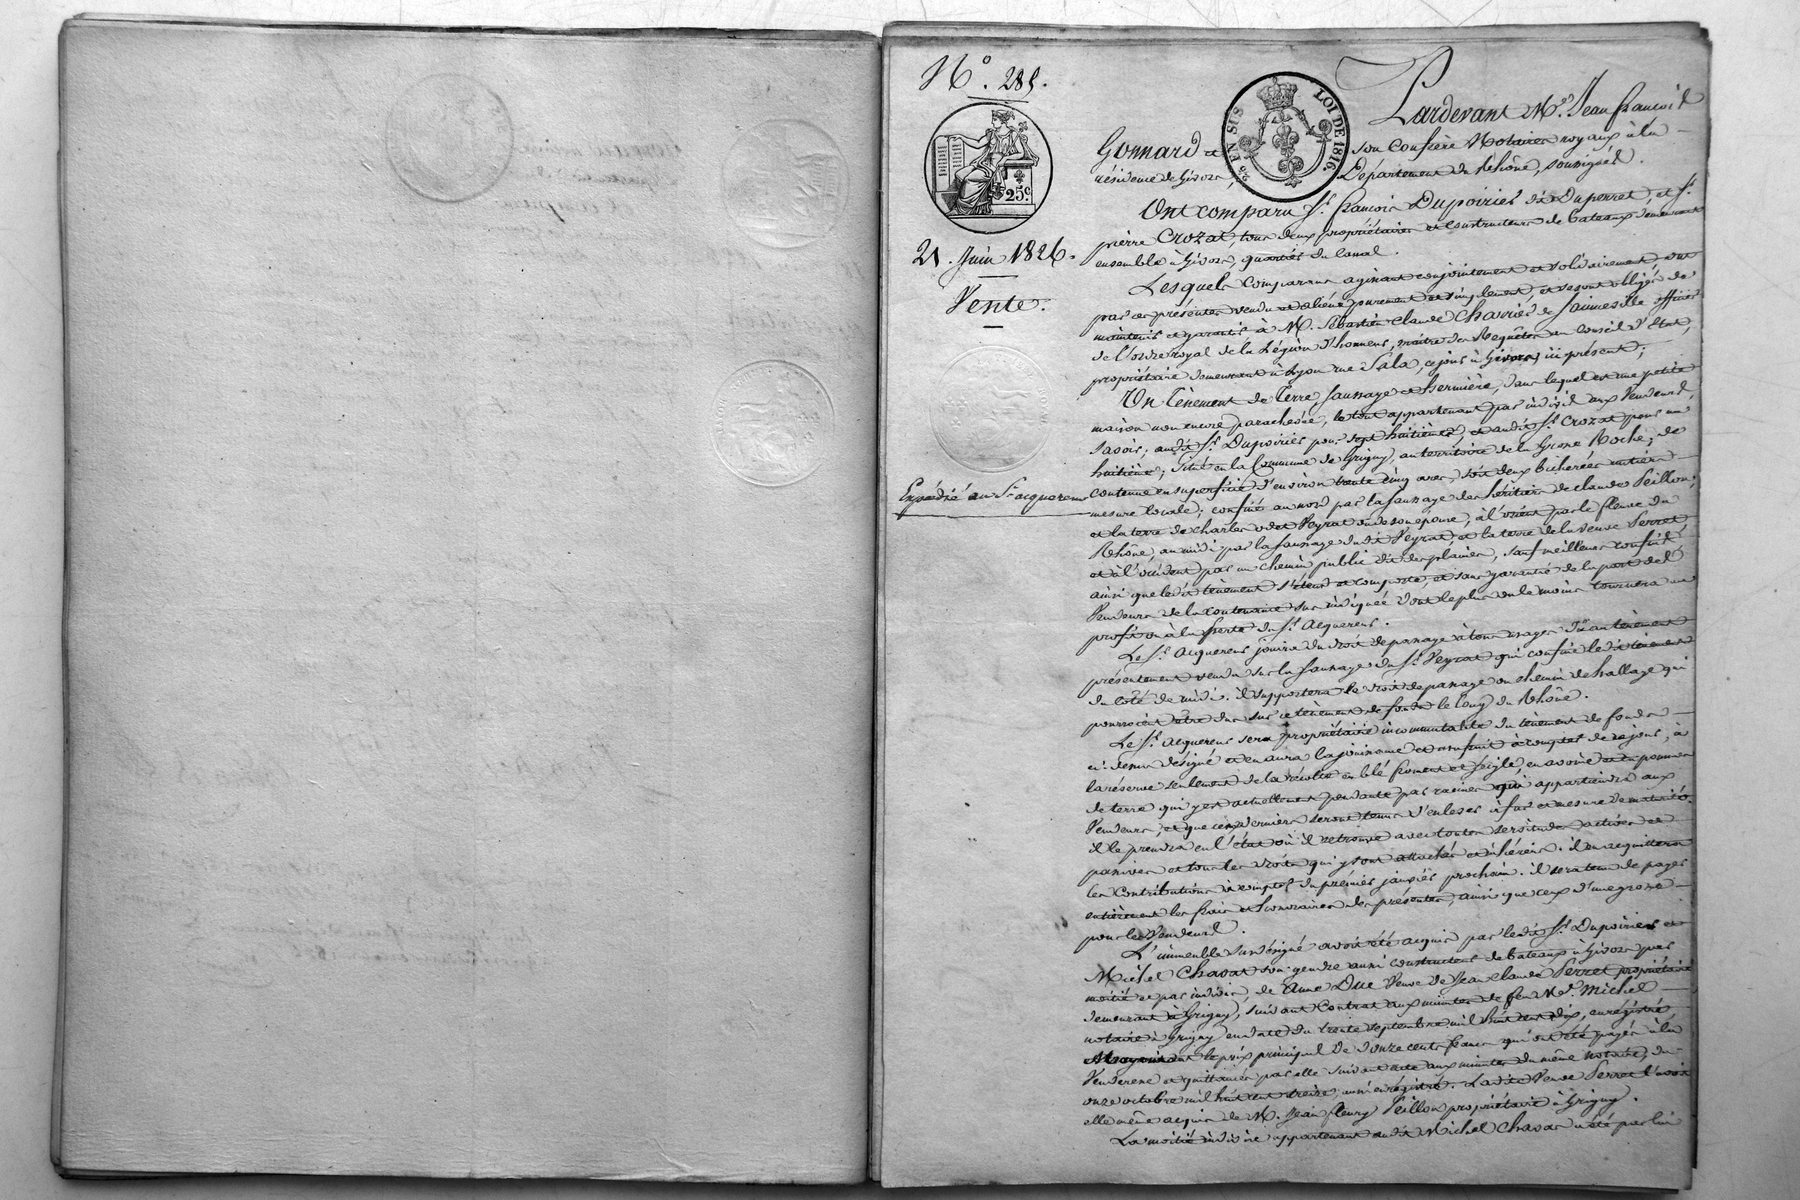 N.o 285.
25.c
21. Juin 1826.
Vente.
Expédié au S.r acquereur
EN SUS
LOI DE 1816.
Pardevant M.e Jean François
Gonnard et son Confrère Notaires royaux à la
résidence de Givors, Département du Rhône, soussignés.
Ont comparu S.r François Dupoiriés dit Duperret, et S.r
pierre Crozat, tous deux propriétaires et constructeurs de bateaux demeurant
ensemble à Givors, quartier du Canal.
Lesquels comparans agissant conjointement et solidairement ont
par ces présentes vendu et aliéné purement et simplement, et se sont obligés de
maintenir et garantir à M. Sébastien Claude Charrier de Sainneville officier
de l'ordre royal de la Légion d'honneur, maître des Requêtes au Conseil d'Etat,
propriétaire demeurant à Lyon rue Sala, ce jour à Givors, ici présent;
Un Tènement de Terre, saussaye et hermière, dans lequel est une petite
maison non encore parachevée, le tout appartenant par indivis aux Vendeurs,
savoir; audit S.r Dupoiriés pour sept huitièmes, et audit S.r Crozat pour un
huitième; situé en la Commune de Grigny, au territoire de la Grosse Roche; de
contenue en superficie d'environ trente cinq ares, soit deux bicherées entières
mesure locale; confiné au nord par la saussaye des héritiers de claude Peillon;
et la terre de Charles Peyrat ou de son épouse, à l'orient par le fleuve du
Rhône, au midi par la saussaye dudit Peyrat et la terre de la veuve Serret,
et à l'occident par un chemin public dit des plaines, sauf meilleurs confins
ainsi que ledit tènement s'étend et comporte, et sans garantie de la part des
Vendeurs de la contenance sus indiquée dont le plus ou le moins tournera au
profit ou à la perte du S.r Acquereur.
Le S.r Acquereur jouira du droit de passage à tous usages dû au tènement
présentement vendu sur la saussaye du S.r Peyrat qui confine ledit tènement
du coté de midi. il supportera le droit de passage ou chemin de hallage qui
pourroient être dus sur ce tènement de fonds le long du Rhône.
Le S.r Acquereur sera propriétaire incommutable du tènement de fonds
ci-dessus désigné et en aura la jouissance et usufruit à compter de ce jour, à
la réserve seulement de la récolte en blé froment et seigle, en avoine et en pommes
de terre qui y est actuellement pendante par racines qui appartiendra aux
Vendeurs, et que ces derniers seront tenus d'enlever à fur et mesure de maturité.
il le prendra en l'état où il se trouve avec toutes servitudes actives et
passives et tous les droits qui y sont attachés et inhérens. il en acquittera
les Contributions à compter du premier janvier prochain. il sera tenu de payer
entièrement les frais et honoraires des présentes, ainsi que ceux d'une grosse
pour les Vendeurs.
L'immeuble susdésigné avoit été acquis par ledit S.r Dupoiriés et
Michel Chavas son gendre aussi constructeur de bateaux à Givors par
moitié et par indivis de Anne Due Veuve de Jean Claude Serret propriétaire
demeurant à Grigny, suivant Contrat aux minutes de feu M.e Michel
notaire à Grigny en date du trente septembre mil huit cent dix, enregistré,
moyennant le prix principal de douze cents francs qui ont été payés à la
Venderesse et quittancés par elle suivant acte aux minutes du même notaire, du
onze octobre mil huit cent treize, aussi enregistré. Ladite Veuve Serret l'avoit
elle même acquis de M. Jean fleury Peillon propriétaire à Grigny.
La moitié indivise appartenant audit Michel Chavas a été par lui